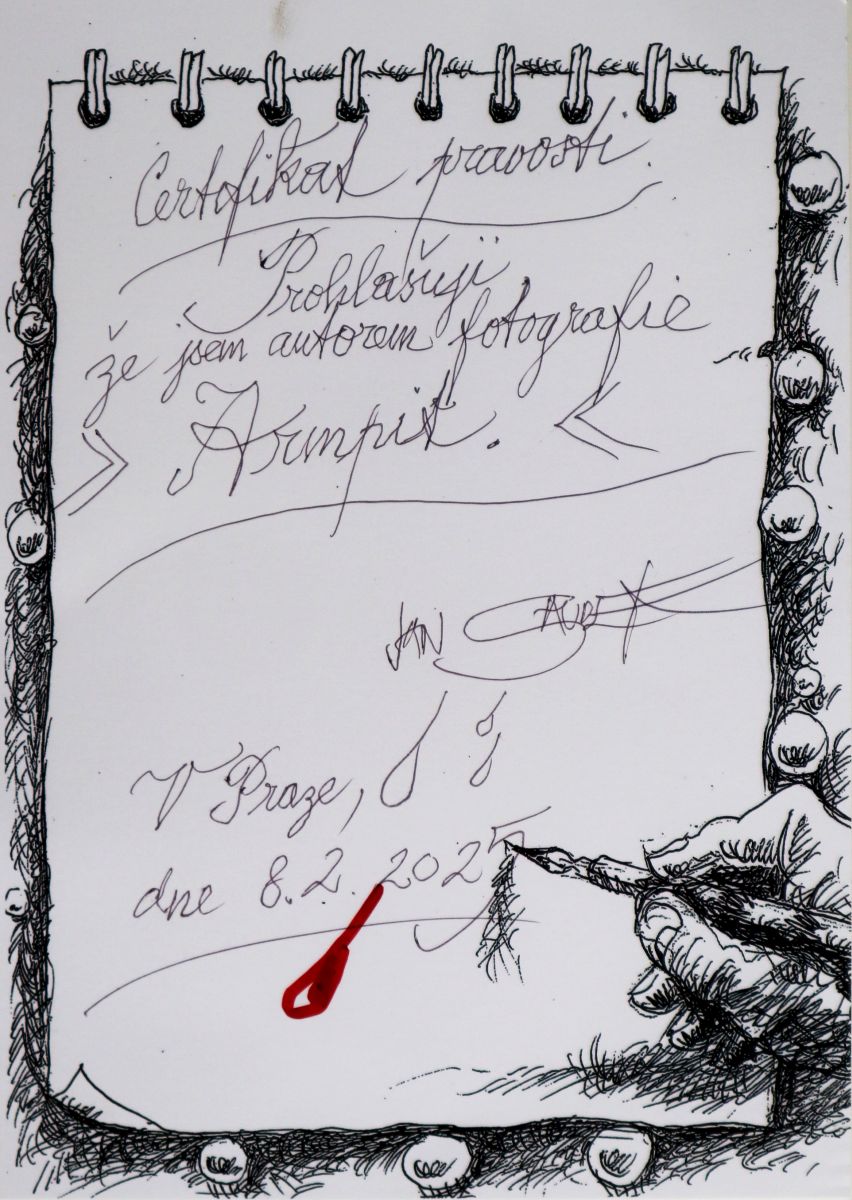 Certifikat pravosti.
Prohlašuji
že jsem autorem fotografie
» Armpit. «
JAN SAUDEK
V Praze,
dne 8.2.2025